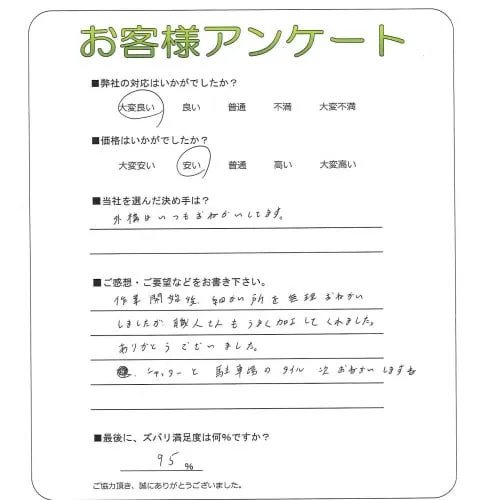 お客様アンケート
■弊社の対応はいかがでしたか?
大変良い 良い 普通 不満 大変不満
■価格はいかがでしたか?
大変安い 安い 普通 高い 大変高い
■当社を選んだ決め手は?
外構はいつもおねがいしてます。
■ご感想・ご要望などをお書き下さい。
作業開始後、細かい所を無理おねがい
しましたが職人さんもうまく加工してくれました。
ありがとうございました。
シャッターと駐車場のタイル次おねがいします
■最後に、ズバリ満足度は何%ですか?
95 %
ご協力頂き、誠にありがとうございました。